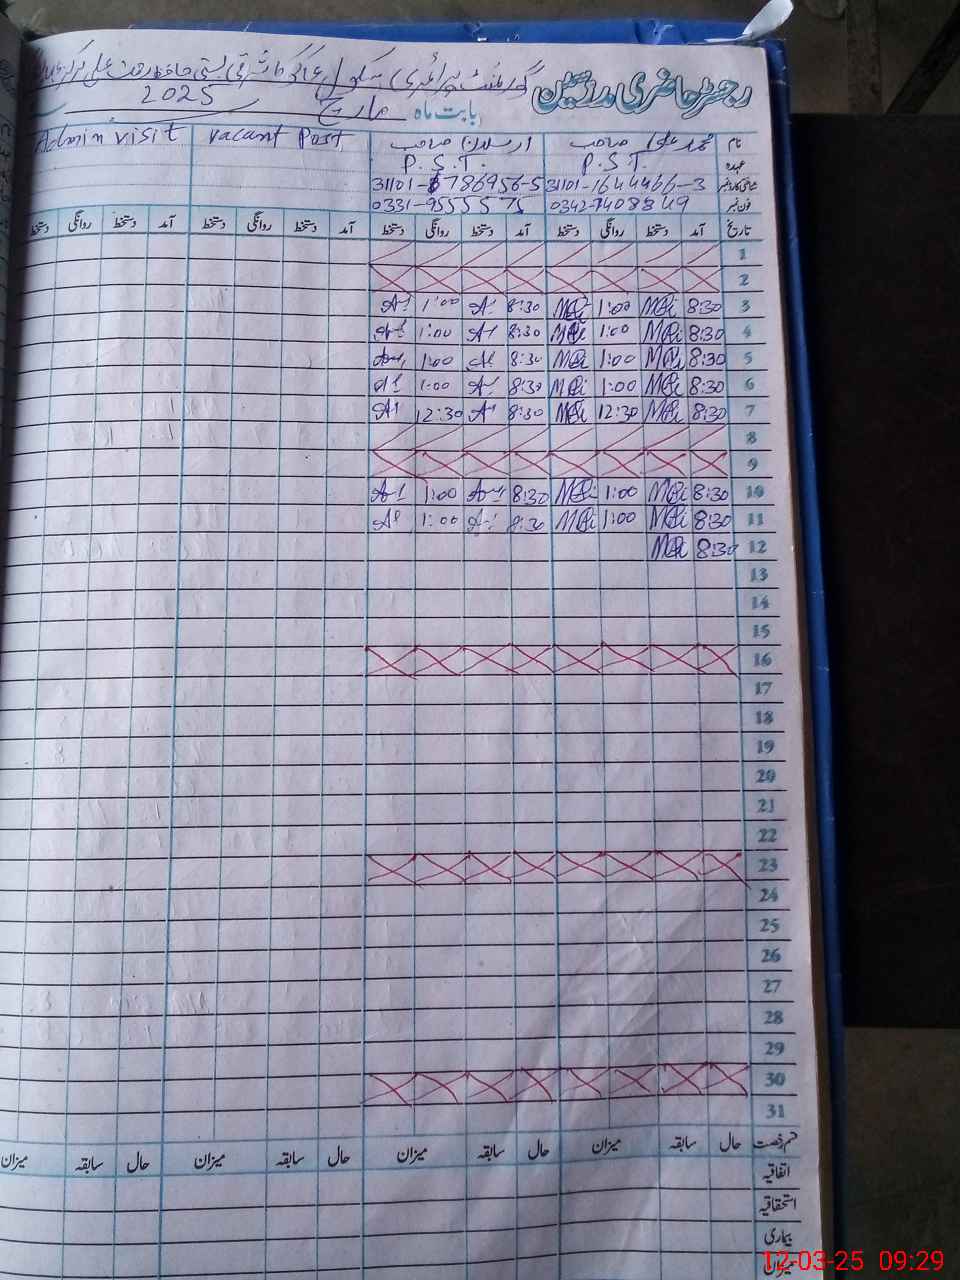 رجسٹر حاضری مدرسین گورنمنٹ پرائمری سکول
بابت ماہ مارچ 2025
نام محمد علی صاحب ارسلان صاحب vacant Post Admin visit
عہدہ P.S.T. P.S.T.
شناختی کارڈ نمبر 31101-1644466-3 31101-6786956-5
فون نمبر 0342-7408849 0331-9555575
تاریخ آمد دستخط روانگی دستخط آمد دستخط روانگی دستخط آمد دستخط روانگی دستخط آمد دستخط روانگی دستخط
1
2
3 8:30 1:00 8:30 1:00
4 8:30 1:00 8:30 1:00
5 8:30 1:00 8:30 1:00
6 8:30 1:00 8:30 1:00
7 8:30 12:30 8:30 12:30
8
9
10 8:30 1:00 8:30 1:00
11 8:30 1:00 8:30 1:00
12 8:30
13
14
15
16
17
18
19
20
21
22
23
24
25
26
27
28
29
30
31
قسم رخصت حال سابقہ میزان حال سابقہ میزان حال سابقہ میزان حال سابقہ میزان
اتفاقیہ
استحقاقیہ
بیماری
میزان
12-03-25 09:29